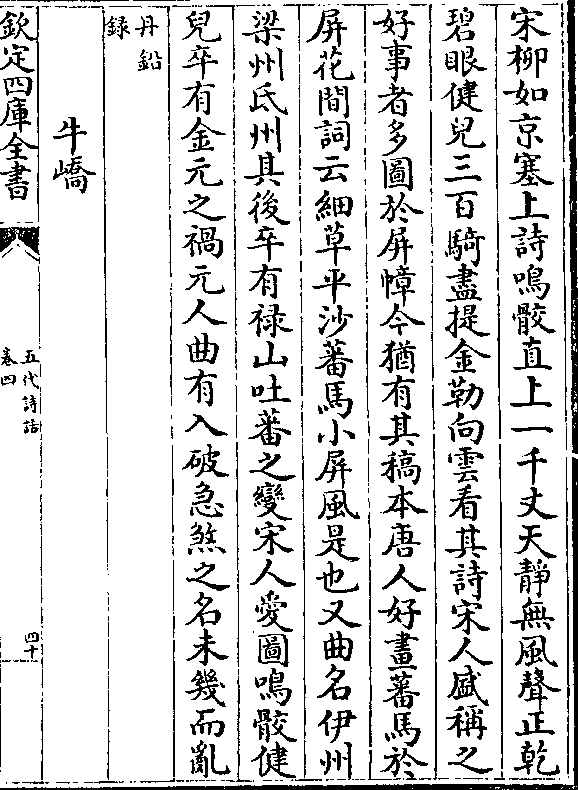 宋柳如京塞上詩鳴骹直上一千丈天靜無風聲正乾
碧眼健兒三百騎盡提金勒向雲看其詩宋人盛稱之
好事者多圖於屏幛今猶有其稿本唐人好畫蕃馬於
屏花間詞云細草平沙蕃馬小屏風是也又曲名伊州
梁州氐州其後卒有祿山吐蕃之變宋人愛圖鳴骹健
兒卒有金元之禍元人曲有入破急煞之名未幾而亂
丹鉛
録
牛嶠
欽定四庫全書
五代詩話
卷四
四十